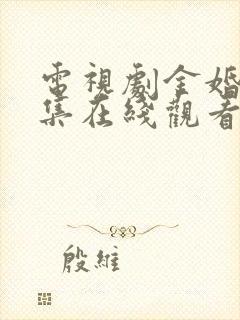 電視劇全婚
集在綫觀看
殷維